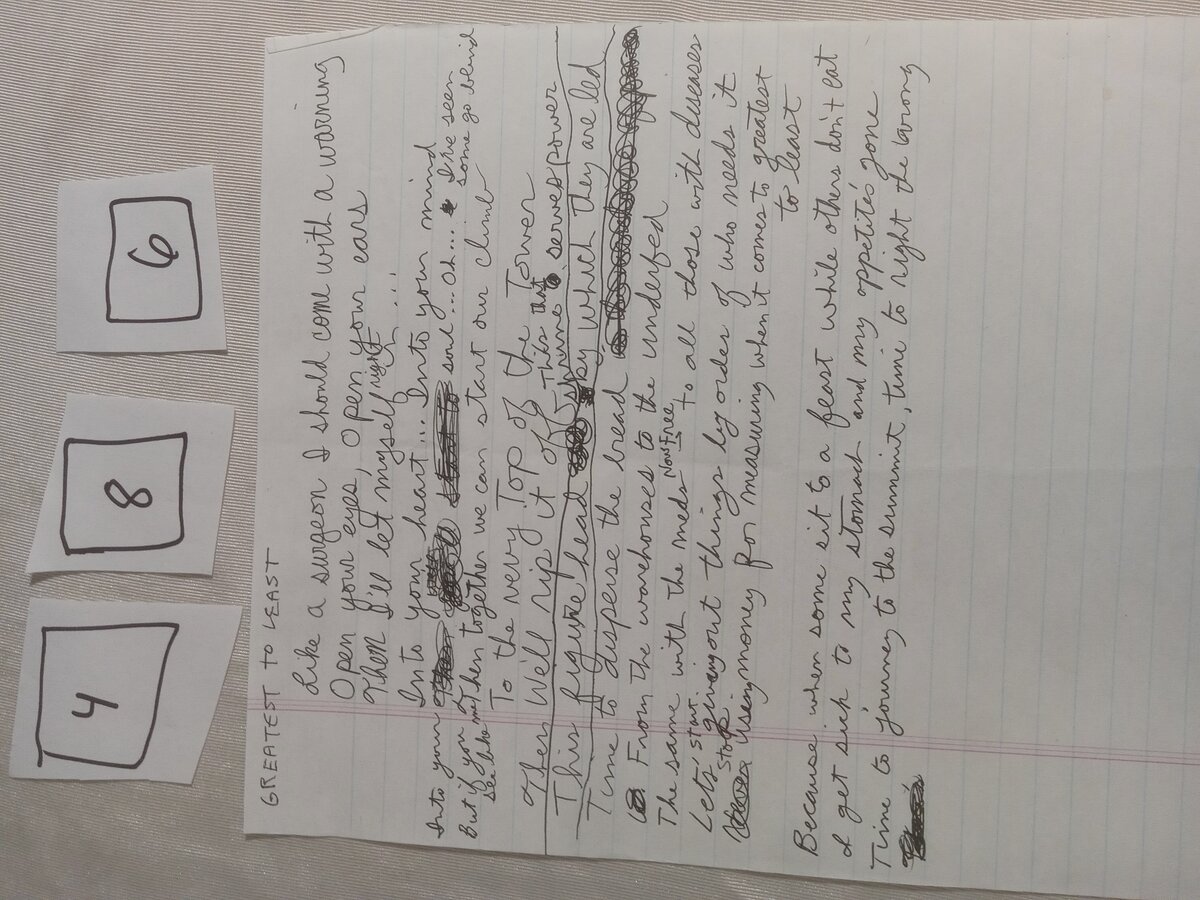 4
8
6
GREATEST TO LEAST
Like a surgeon I should come with a warning
Open your eyes, Open your ears
Then I'll let myself right...
Into your heart... Into your mind
Into your soul... oh... I've seen some go blind
But if you see like me Then together we can start our climb
To the very Top of the Tower
Then We'll rip it off This that served power
This figure head by which they are led
Time to dispense the bread
From the warehouses to the underfed
The same with the meds Now Free to all those with diseases
Lets' Start giving out things by order of who needs it
Stop Using money for measuring when it comes to greatest
to least
Because when some sit to a feast while others don't eat
I get sick to my stomach and my appetite's gone
Time to journey to the summit, time to right the wrong